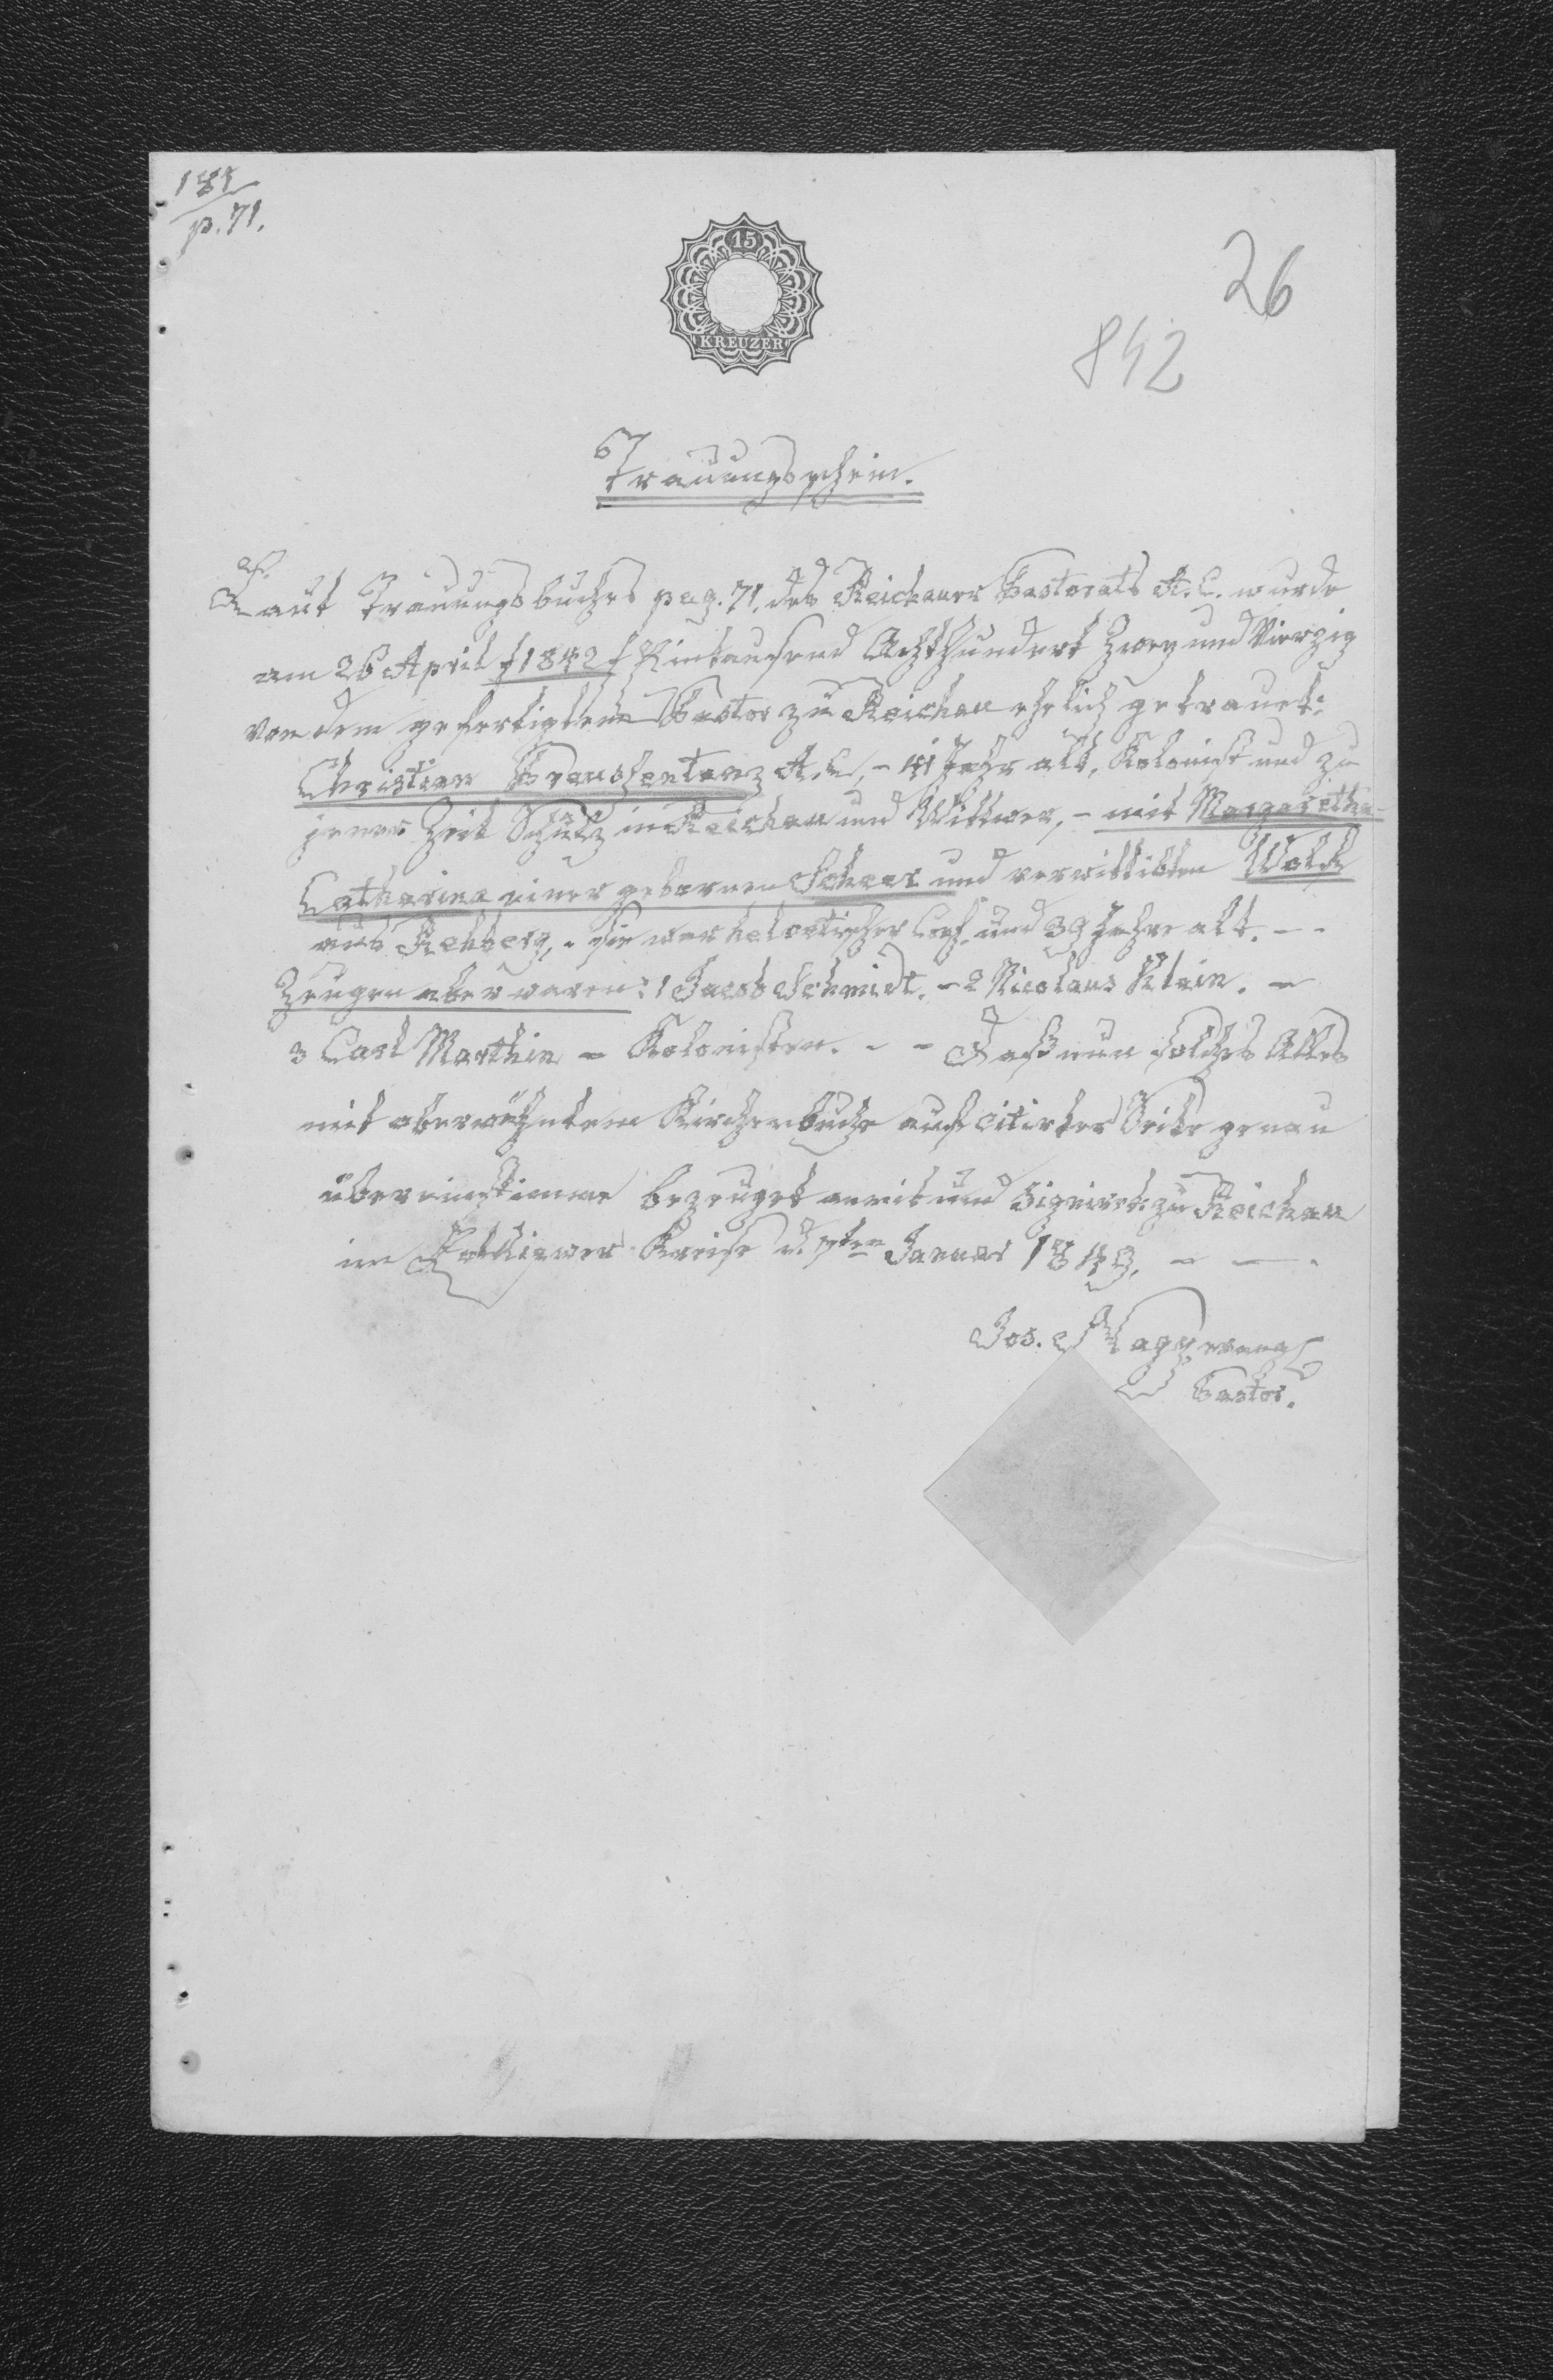 181
p. 71.
15
KREUZER
26
842
Trauungsschein.
Laut Trauungsbuches pag. 71. des Reichauer Pastorats A. C. wurde
am 26 April /:1842:/ Eintausend Achthundert Zwey und Vierzig
von dem gefertigtem Pastor zu Reichau ehelich getrauet:
Christian A. C, - 41 Jahr alt, Kolonist und zu
jener Zeit Schulz in Reichau und Wittwer, - mit Margaretha
Catharina einer gebornen Scheer und verwittibten Wolch
aus Rehberg, - sie war helvetischer Conf. und 39 Jahre alt. - -
Zeugen aber waren: 1 Jacob Schmidt. - 2 Nicolaus Klein. -
3 Carl Marthin - Kolonisten. - - Daß nun solches Alles
mit oberwähntem Kirchenbuche auf citirter Seite genau
übereinstimme bezeuget anmit und Signirt. zu Reichau
im Zolkiewer Kreise d. 7ten Januar 1843. - -
Jos.
Pastor.